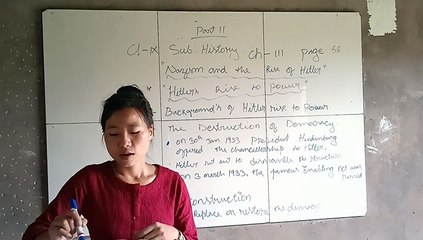 Part II
Cl-IX Sub: History ch-III page 56
"Nazism and the Rise of Hitler"
"Hitler's Rise to power"
Background's of Hitler rise to Power
The Destruction of Democracy
• on 30th Jan 1933 President Hindenburg
offered the chancellorship to Hitler.
• Hitler set out to dismantle the
on 3 march 1933, the famous Enabling Act was
Passed
construction
Replace or restore the democra